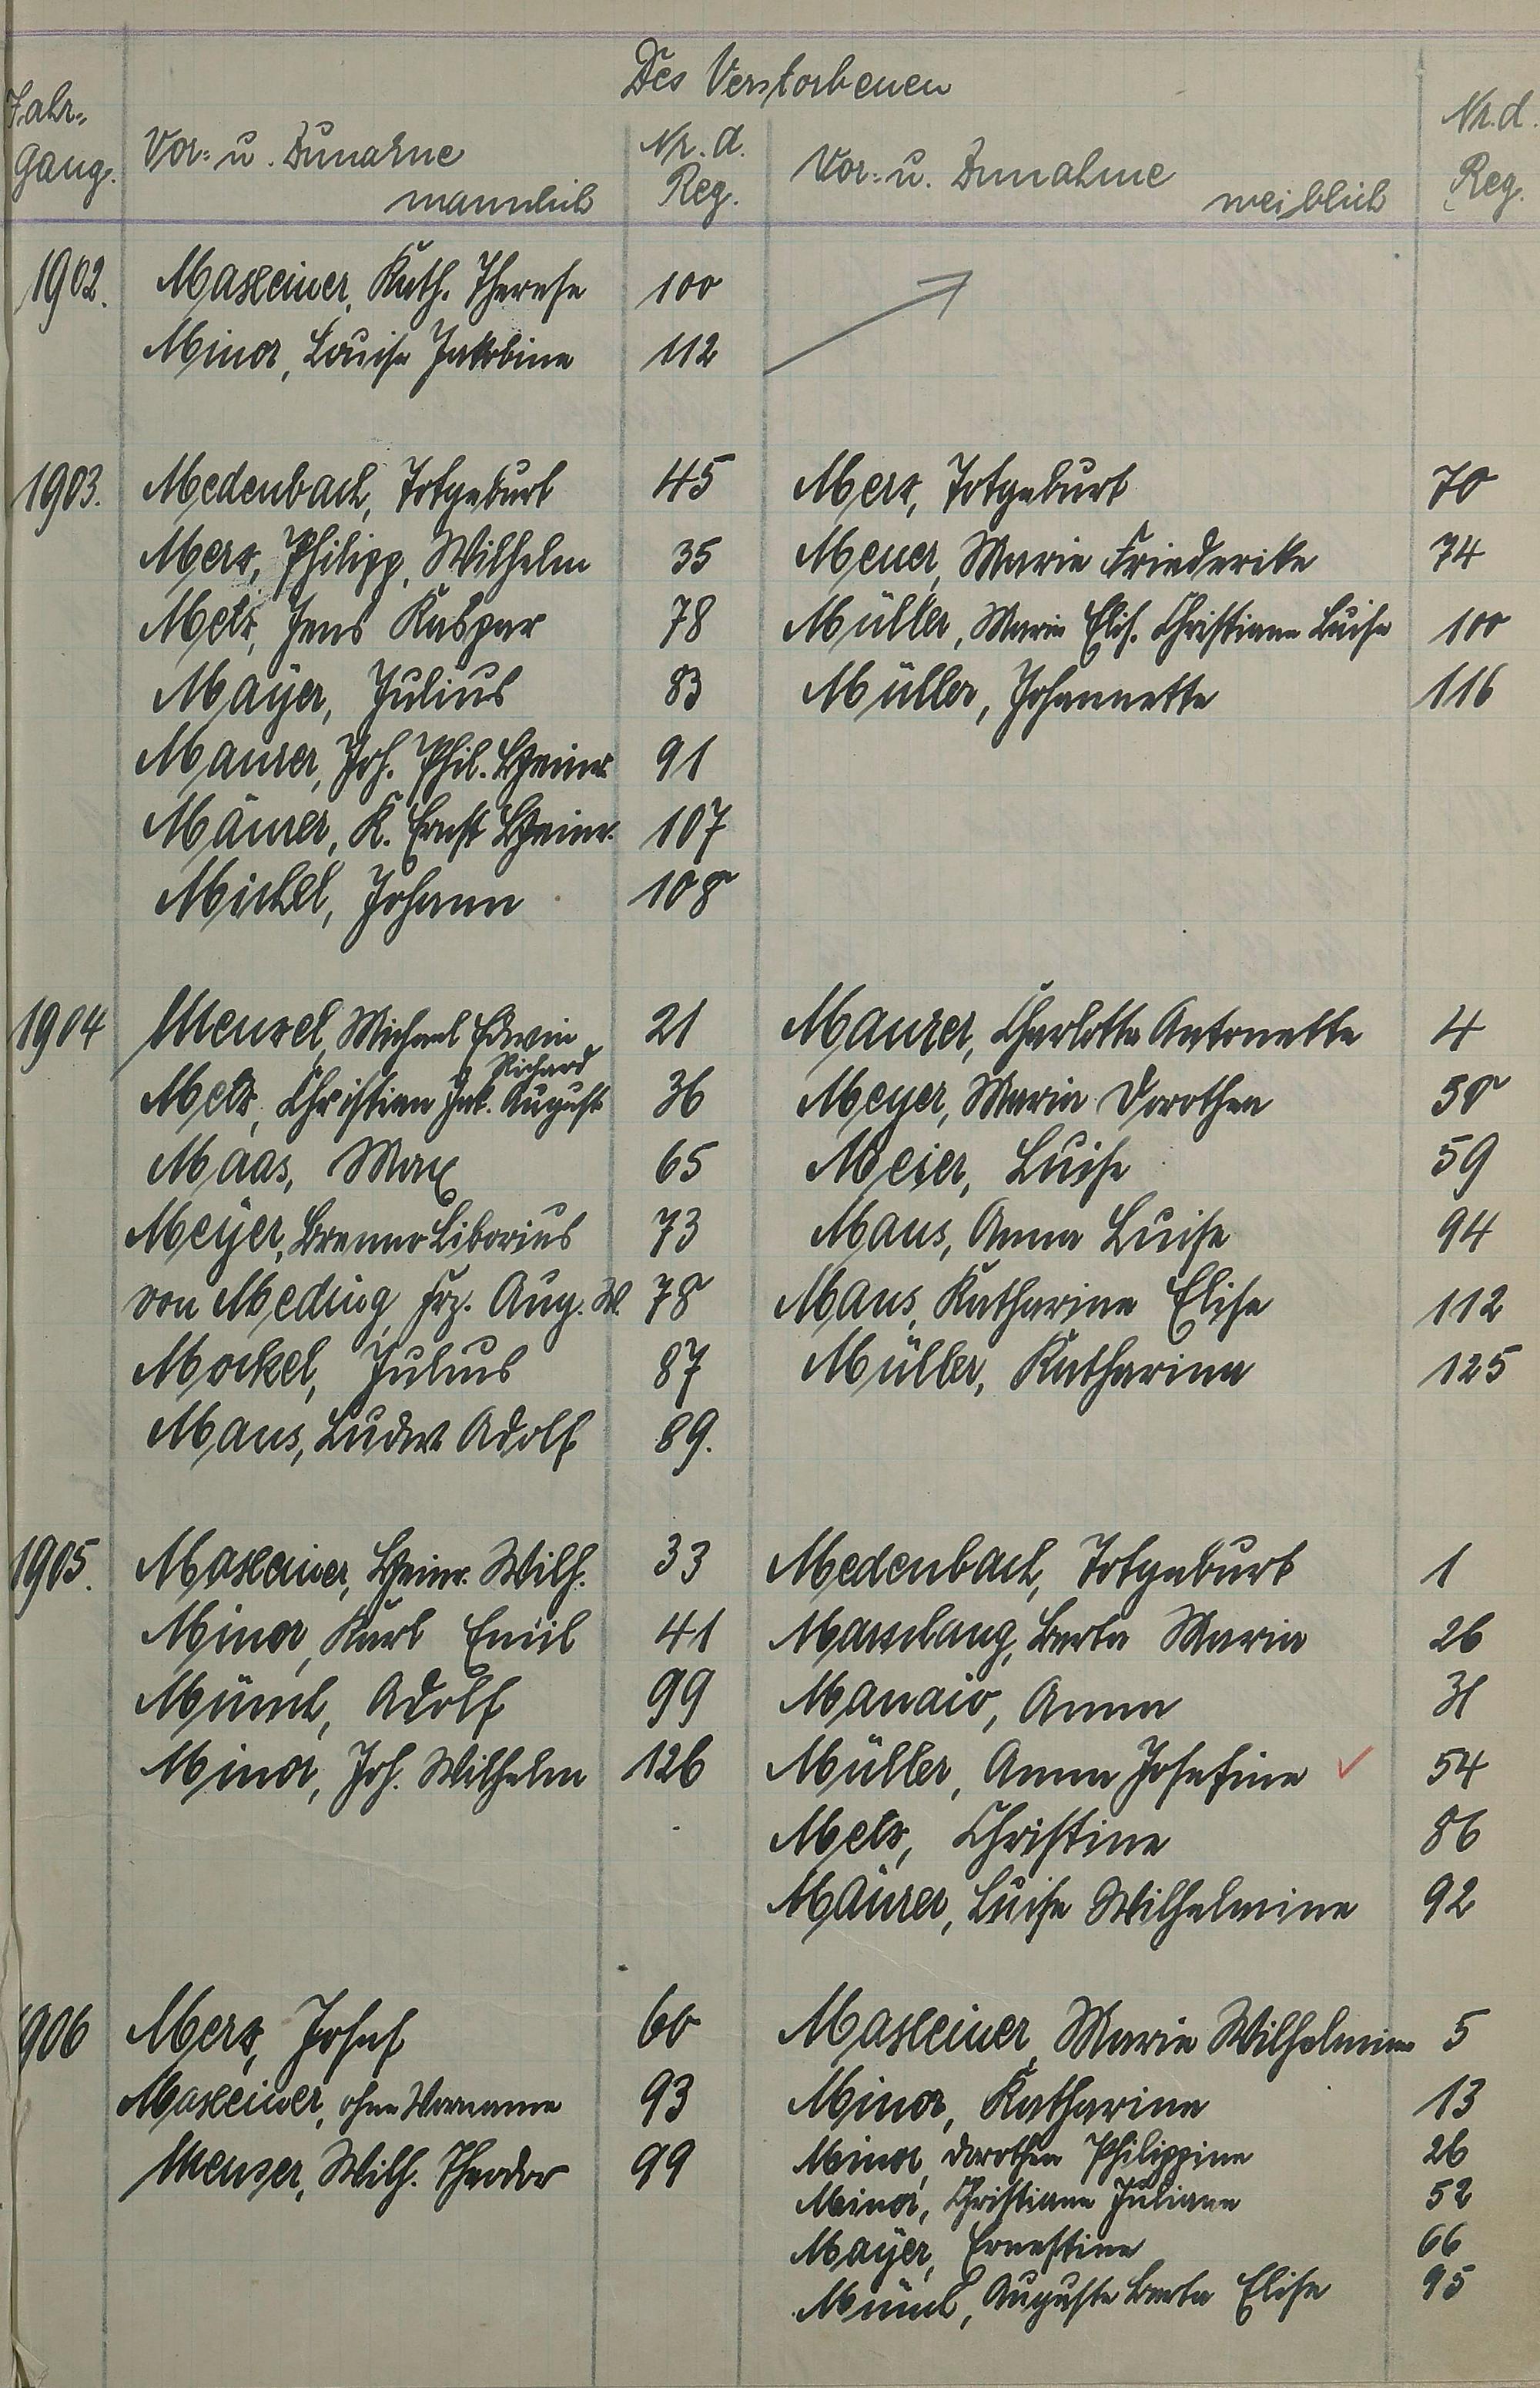 Des Verstorbenen
Jahr-
gang.
Vor- u. Zunahme
männlich
Nr. d.
Reg.
Vor- u. Zunahme
weiblich
Nr. d.
Reg.
1902. Masseiner, Kath. Therese 100
Minor, Louise Jakobine 112
1903. Medenbach, Totgeburt 45 Merz, Totgeburt 70
Merz, Philipp, Wilhelm 35 Meuer, Marie Friederike 74
Metz, Jens Kaspar 78 Müller, Marie Elis. Christiane Luise 100
Mayer, Julius 83 Müller, Johannette 116
Maurer, Joh. Phil. Heinr. 91
Mäurer, K. Ernst Heinr. 107
Michel, Johann 108
1904 Menzel, Michael Edwin 21 Maurer, Charlotte Antonette 4
Richard
Metz, Christian Jak. August 36 Meyer, Maria Dorothea 58
Maas, Max 65 Meier, Luise 59
Meyer, Brenno Liborius 73 Maus, Anna Luise 94
von Meding, Frz. Aug. W. 78 Maus, Katharine Elise 112
Mockel, Julius 87 Müller, Katharina 125
Maus, Ludw. Adolf 89.
1905. Masseiner, Heinr. Wilh. 33 Medenbach, Totgeburt 1
Minor, Karl Emil 41 Marschang, Berta Maria 26
Münch, Adolf 99 Manaio, Anna 31
Minor, Joh. Wilhelm 126 Müller, Anna Josefine ✓ 54
Metz, Christine 86
Mäurer, Luise Wilhelmine 92
1906 Merz, Josef 60 Masseiner, Marie Wilhelmine 5
Masseiner, ohne Vorname 93 Minor, Katharine 13
Menser, Wilh. Theodor 99 Minor, Dorothea Philippine 26
Minor, Christiane Juliane 52
Mayer, Ernestine 66
Münch, Auguste Berta Elise 95